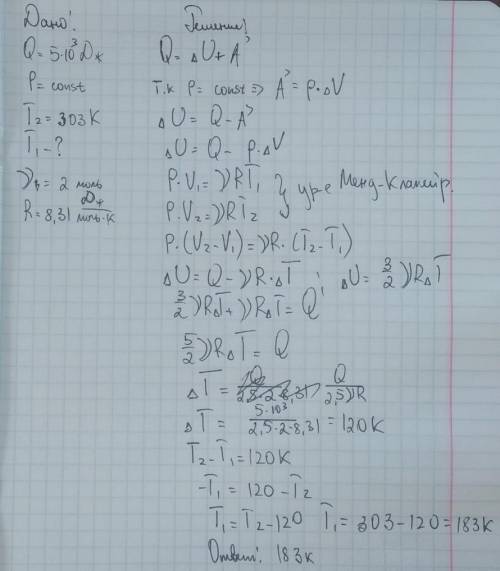 Дано:
Q = 5·10³ Дж
P = const
T₂ = 303 K
T₁ - ?
ν = 2 моль
R = 8,31 Дж/моль·К
Решение:
Q = ΔU + A'
т.к P = const => A' = p·ΔV
ΔU = Q - A'
ΔU = Q - p·ΔV
P·V₁ = νRT₁ } ур-е Менд-Клапейр.
P·V₂ = νRT₂
P·(V₂ - V₁) = νR·(T₂ - T₁)
ΔU = Q - νR·ΔT ; ΔU = 3/2 νRΔT
3/2 νRΔT + νRΔT = Q
5/2 νRΔT = Q
ΔT = Q/2,5νR
ΔT = 5·10³/2,5·2·8,31 = 120 K
T₂ - T₁ = 120 K
-T₁ = 120 - T₂
T₁ = T₂ - 120 T₁ = 303 - 120 = 183 K
Ответ: 183 K